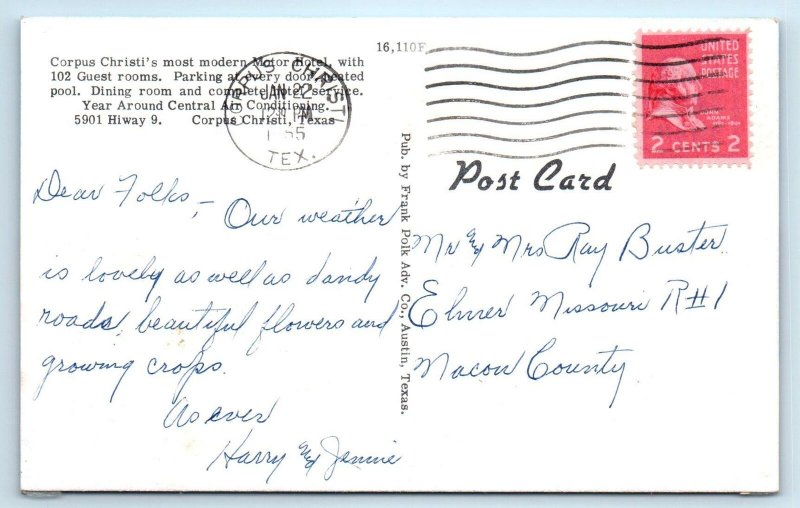 16,110F
Corpus Christi's most modern Motor Hotel, with
102 Guest rooms. Parking at every door, heated
pool. Dining room and complete hotel service.
Year Around Central Air Conditioning.
5901 Hiway 9. Corpus Christi, Texas
CORPUS CHRISTI
JAN 22
PM
TEX.
UNITED
STATES
POSTAGE
JOHN
ADAMS
2 CENTS 2
Post Card
Pub. by Frank Polk Adv. Co., Austin, Texas.
Dear Folks, –
Our weather
is lovely as well as dandy
roads, beautiful flowers and
growing crops.
As ever
Harry & Jennie
Mr & Mrs Ray Buster
Elmer Missouri R#1
Macon County